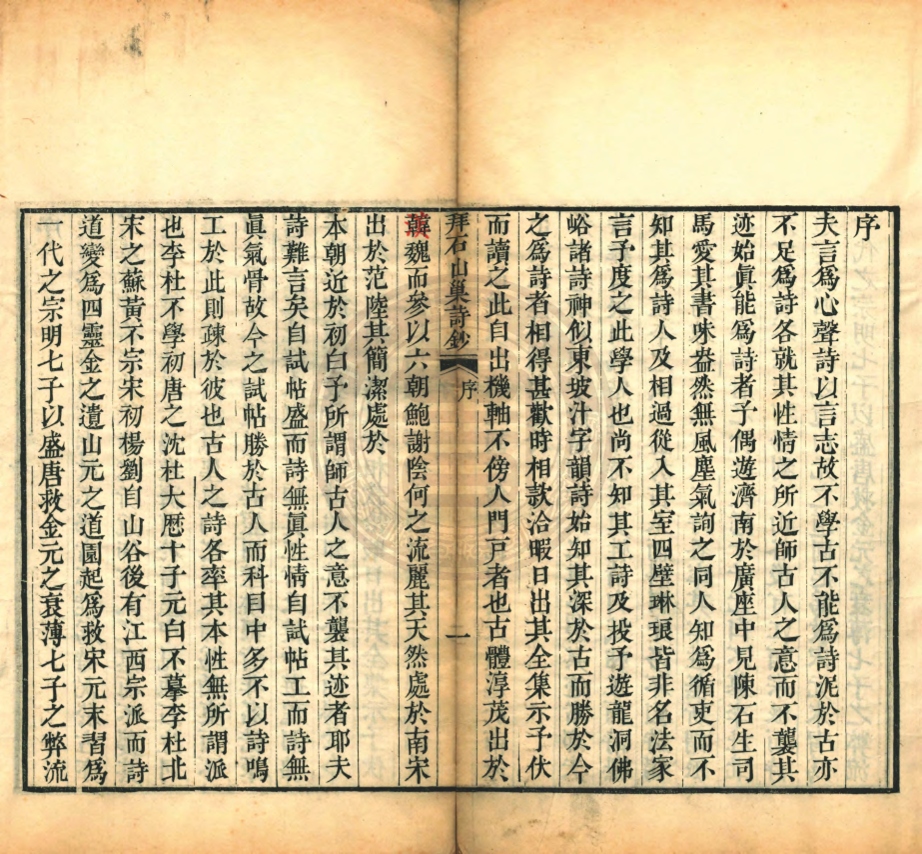 序
夫言爲心聲詩以言志故不學古不能爲詩泥於古亦
不足爲詩各就其性情之所近師古人之意而不襲其
迹始眞能爲詩者予偶遊濟南於廣座中見陳石生司
馬愛其書味盎然無風塵氣詢之同人知爲循吏而不
知其爲詩人及相過從入其室四壁琳琅皆非名法家
言予度之此學人也尚不知其工詩及投予遊龍洞佛
峪諸詩神似東坡汁字韻詩始知其深於古而勝於今
之爲詩者相得甚歡時相款洽暇日出其全集示予伏
而讀之此自出機軸不傍人門戸者也古體淳茂出於
拜石山巢詩鈔 序 一
魏而參以六朝鮑謝陰何之流麗其天然處於南宋
出於范陸其簡潔處於
本朝近於初白予所謂師古人之意不襲其迹者耶夫
詩難言矣自試帖盛而詩無眞性情自試帖工而詩無
眞氣骨故今之試帖勝於古人而科目中多不以詩鳴
工於此則疎於彼也古人之詩各率其本性無所謂派
也李杜不學初唐之沈杜大厯十子元白不摹李杜北
宋之蘇黃不宗宋初楊劉自山谷後有江西宗派而詩
道變爲四靈金之遺山元之道園起爲救宋元末習爲
一代之宗明七子以盛唐救金元之衰薄七子之弊流